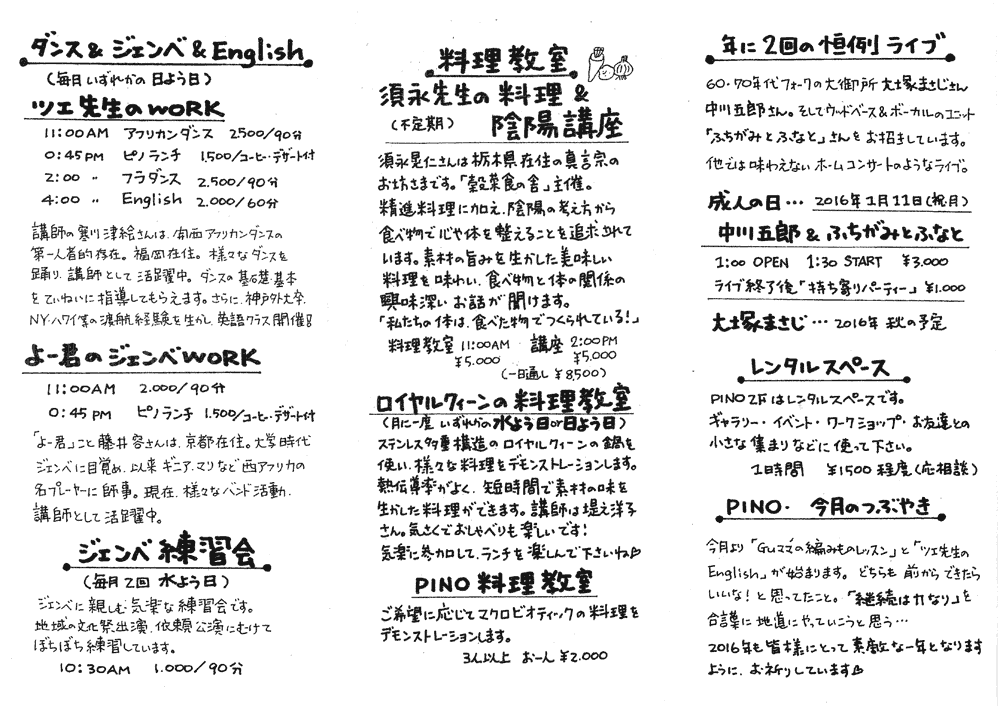 ダンス&ジェンベ&English
(毎月いずれかの日よう日)
ツエ先生のWORK
11:00AM アフリカンダンス 2500/90分
0:45PM ピノランチ 1,500/コーヒー・デザート付
2:00 〃 フラダンス 2.500/90分
4:00 〃 English 2.000/60分
講師の寒川津絵さんは、南西アフリカンダンスの
第一人者的存在。福岡在住。様々なダンスを
踊り、講師として活躍中。ダンスの基礎・基本
をていねいに指導してもらえます。さらに、神戸外大卒、
NY・ハワイ等の渡航経験を生かし、英語クラス開催!
よー君のジェンベWORK
11:00AM 2.000/90分
0:45PM ピノランチ 1.500/コーヒー・デザート付
「よー君」こと藤井容さんは、京都在住。大学時代
ジェンベに目覚め、以来ギニア、マリなど西アフリカの
名プレーヤーに師事。現在、様々なバンド活動、
講師として活躍中。
ジェンベ練習会
(毎月2回 水よう日)
ジェンベに親しむ気楽な練習会です。
地域の文化祭出演、依頼公演にむけて
ぼちぼち練習しています。
10:30AM 1.000/90分
料理教室
須永先生の料理&
(不定期) 陰陽講座
須永晃仁さんは栃木県在住の真言宗の
お坊さまです。「穀菜食の舎」主催。
精進料理に加え、陰陽の考え方から
食べ物で心や体を整えることを追求されて
います。素材の旨みを生かした美味しい
料理を味わい、食べ物と体の関係の
興味深いお話が聞けます。
「私たちの体は、食べた物でつくられている!」
料理教室 11:00AM 講座 2:00PM
¥5.000 ¥5.000
(一日通し¥8,500)
ロイヤルクィーンの料理教室
(月に一度 いずれかの水よう日or日よう日)
ステンレス多重構造のロイヤルクィーンの鍋を
使い、様々な料理をデモンストレーションします。
熱伝導率がよく、短時間で素材の味を
生かした料理ができます。講師は堤え洋子
さん。気さくでおしゃべりも楽しいです!
気楽に参加して、ランチを楽しんで下さいね
PINO 料理教室
ご希望に応じてマクロビオティックの料理を
デモンストレーションします。
3人以上 お一人¥2.000
年に2回の恒例ライブ
60・70年代フォークの大御所 大塚まさじさん
中川五郎さん。そしてウッドベース&ボーカルのユニット
「ふちがみとふなと」さんをお招きしています。
他では味わえないホームコンサートのようなライブ。
成人の日… 2016年1月11日(祝・月)
中川五郎&ふちがみとふなと
1:00 OPEN 1:30 START ¥3.000
ライブ終了後「持ち寄りパーティー」¥1.000
大塚まさじ… 2016年 秋の予定
レンタルスペース
PINO 2Fはレンタルスペースです。
ギャラリー・イベント・ワークショップ・お友達との
小さな集まりなどに使って下さい。
1日時間 ¥1500程度(応相談)
PINO・ 今月のつぶやき
今月より「Guママの編みものレッスン」と「ツエ先生の
English」が始まります。どちらも前からできたら
いいな!と思ってたこと。「継続は力なり」を
合言葉に地道にやっていこうと思う…
2016年も皆様にとって素敵な一年となります
ように、お祈りしています